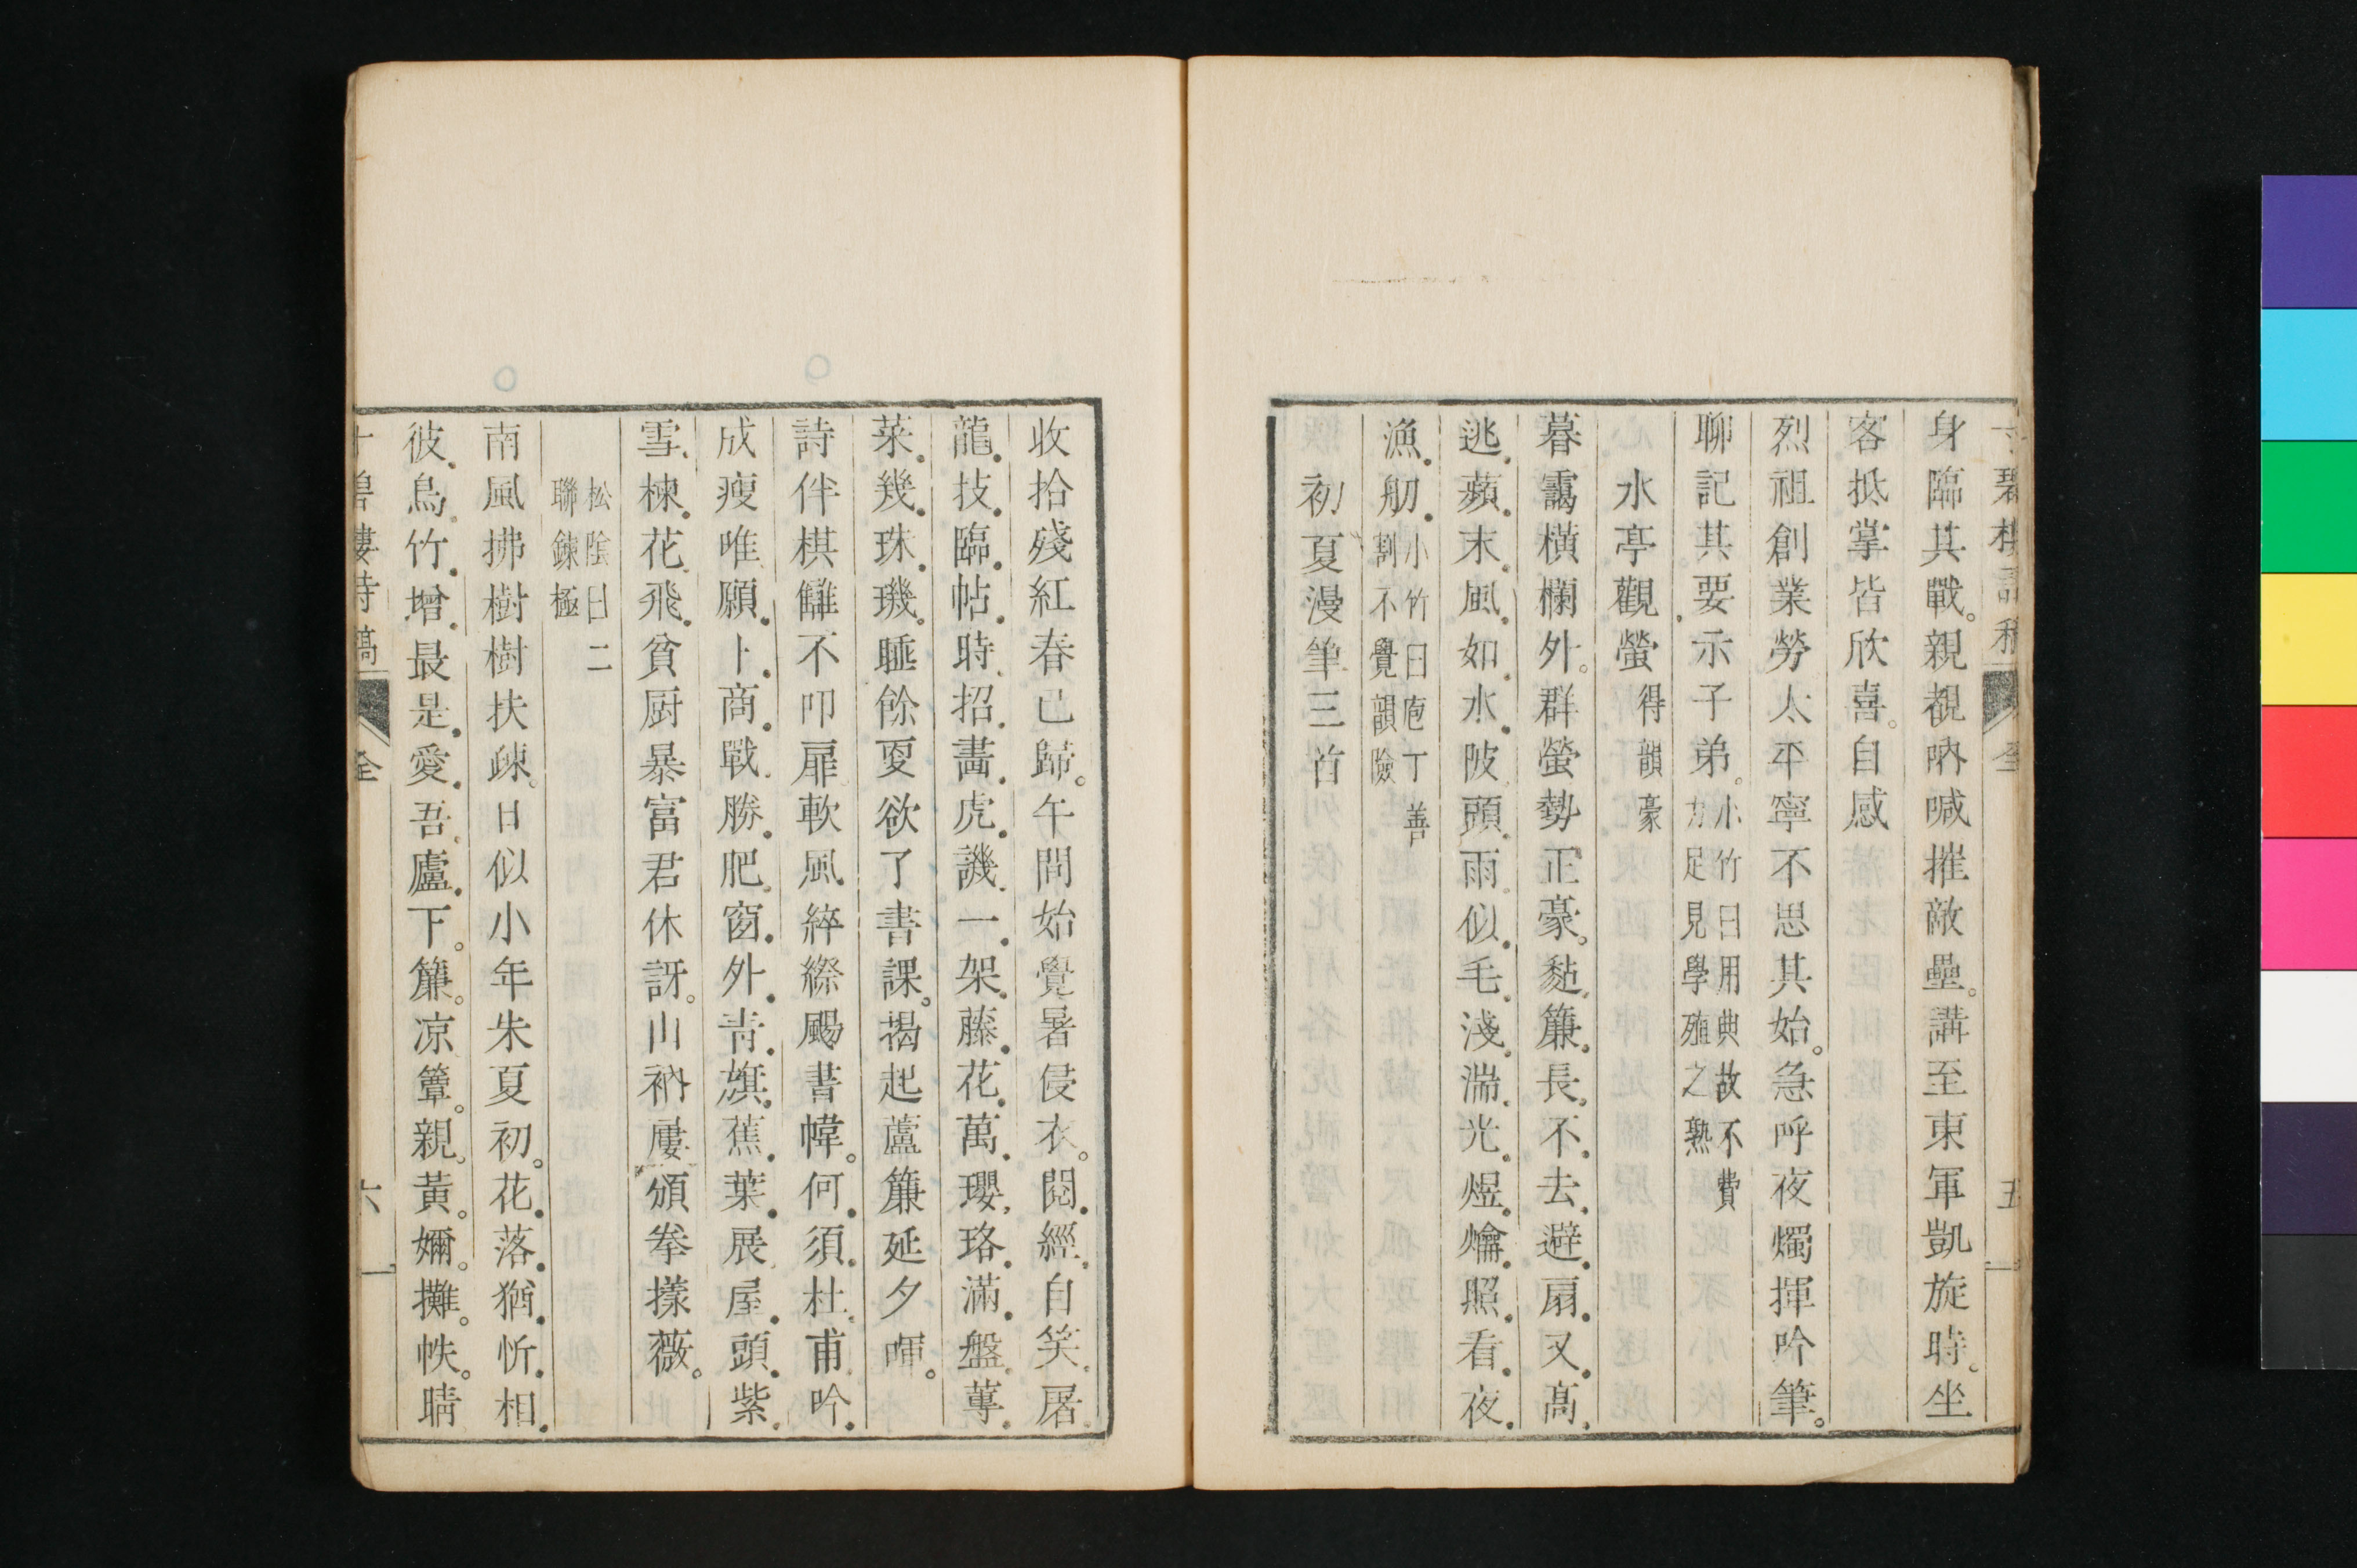 身臨其戰。親覩吶喊摧敵壘。講至東軍凱旋時。坐
客抵掌皆欣喜。自感
烈祖創業勞太平寧不思其始。急呼夜燭揮吟筆。
聊記其要示子弟。小竹曰用典故不費
力足見學殖之熟
水亭觀螢得韻豪
暮靄橫欄外。群螢勢正豪。黏簾長不去避扇又高
逃蘋末風如水陂頭雨似毛淺湍光煜爚照看夜
漁舠小竹曰庖丁善
割不覺韻險
初夏漫筆三首
收拾殘紅春已歸。午間始覺暑侵衣。閱經自笑屠
龍技臨帖時招畫虎譏一架藤花萬瓔珞滿盤蓴
菜幾珠璣。睡餘更欲了書課。揭起蘆簾延夕暉。
詩伴棋讎不叩扉軟風綷縩颺書幃。何須杜甫吟
成瘦唯願卜商戰勝肥窗外青旗蕉葉展屋頭紫
雪楝花飛貧厨暴富君休訝。山衲屢頒拳㨾薇。
松陰曰二
聯鍊極
南風拂樹樹扶疎。日似小年朱夏初。花落猶忻相
彼鳥竹增最是愛吾廬下。簾。凉簟。親。黃。嬭。攤。帙。晴
全
六